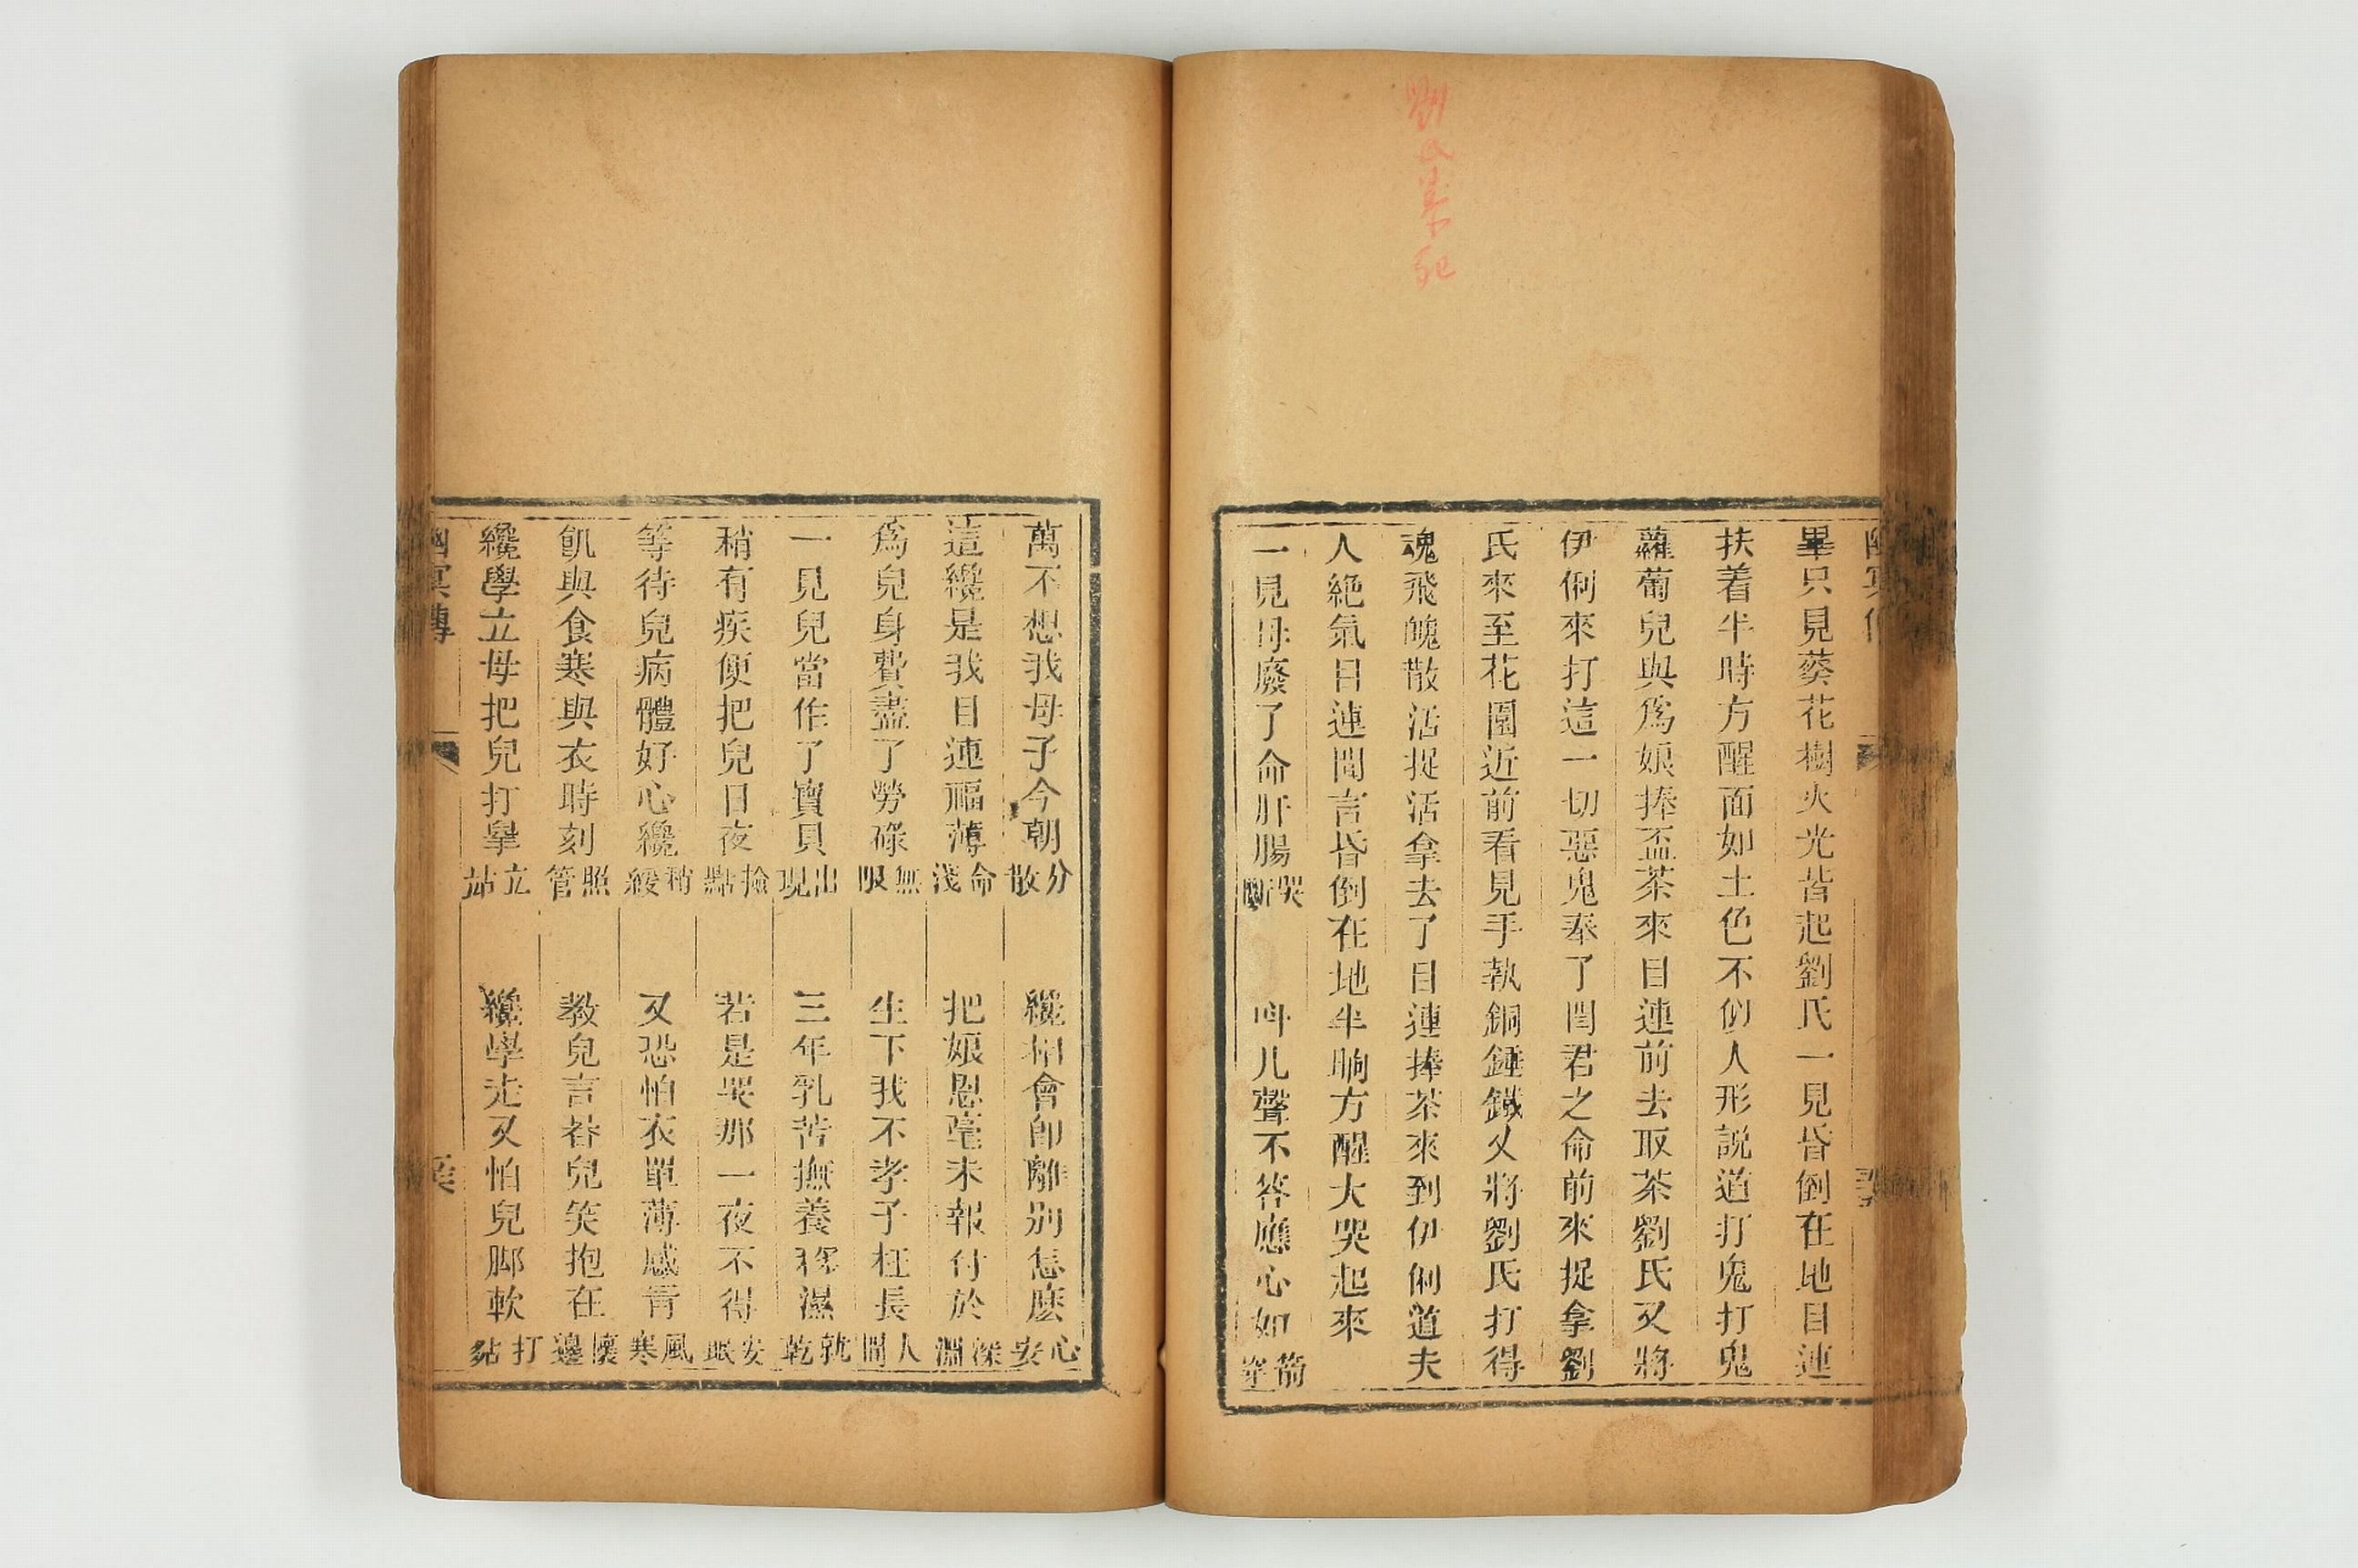 劉氏暴死
畢只見葵花樹火光皆起劉氏一見昏倒在地目連
扶着半時方醒面如土色不似人形説道打鬼打鬼
蘿蔔兒與爲娘捧盃茶來目連前去取茶劉氏又將
伊俐來打這一切惡鬼奉了閆君之命前來捉拿劉
氏來至花園近前看見手執銅錘鐵乂將劉氏打得
魂飛魄散活捉活拿去了目連捧茶來到伊俐道夫
人絶氣目連聞言昏倒在地半晌方醒大哭起來
一見母廢了命肝腸哭斷 呌儿聲不答應心如箭穿
萬不想我母子今朝分散 纔相會即離别怎麽心安
這纔是我目連福薄命淺 把娘恩毫未報付於深淵
爲兒身費盡了勞碌無限 生下我不孝子枉長人間
一見兒當作了寶貝出現 三年乳苦撫養移濕就乾
稍有疾便把兒日夜撿點 若是哭那一夜不得安眠
等待兒病體好心纔稍緩 又恐怕衣單薄感冐風寒
飢與食寒與衣時刻照管 教兒言㸔兒笑抱在懷邊
纔學立母把兒打擧立站 纔學走又怕兒脚軟打跕
幽冥傳